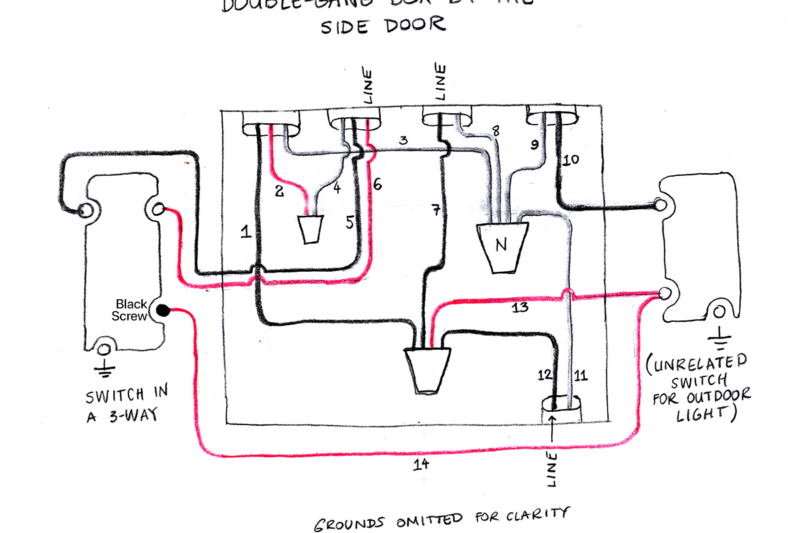 DOUBLE-GANG BOX BY THE
SIDE DOOR
LINE
LINE
1
2
3
4
5
6
7
8
9
10
N
Black
Screw
13
12
11
14
LINE
SWITCH IN
A 3-WAY
(UNRELATED
SWITCH
FOR OUTDOOR
LIGHT)
GROUNDS OMITTED FOR CLARITY